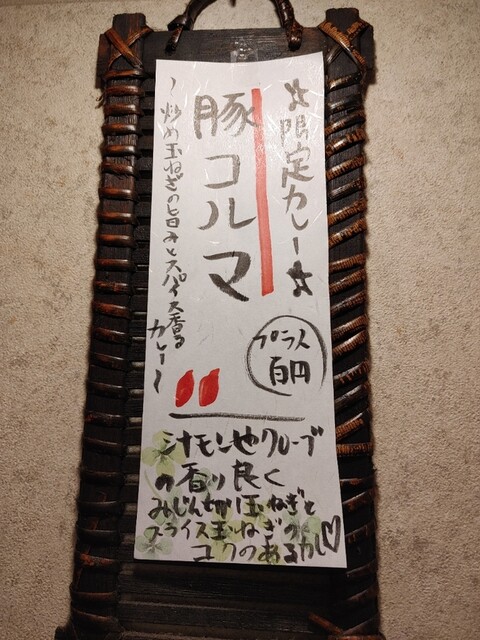 ☆限定カレー☆
豚コルマ
～炒め玉ねぎの旨みとスパイス香る
カレー～
プラス
百円
シナモンやクローブ
の香り良く
みじん切り玉ねぎと
スライス玉ねぎの
コクのあるカレー♡